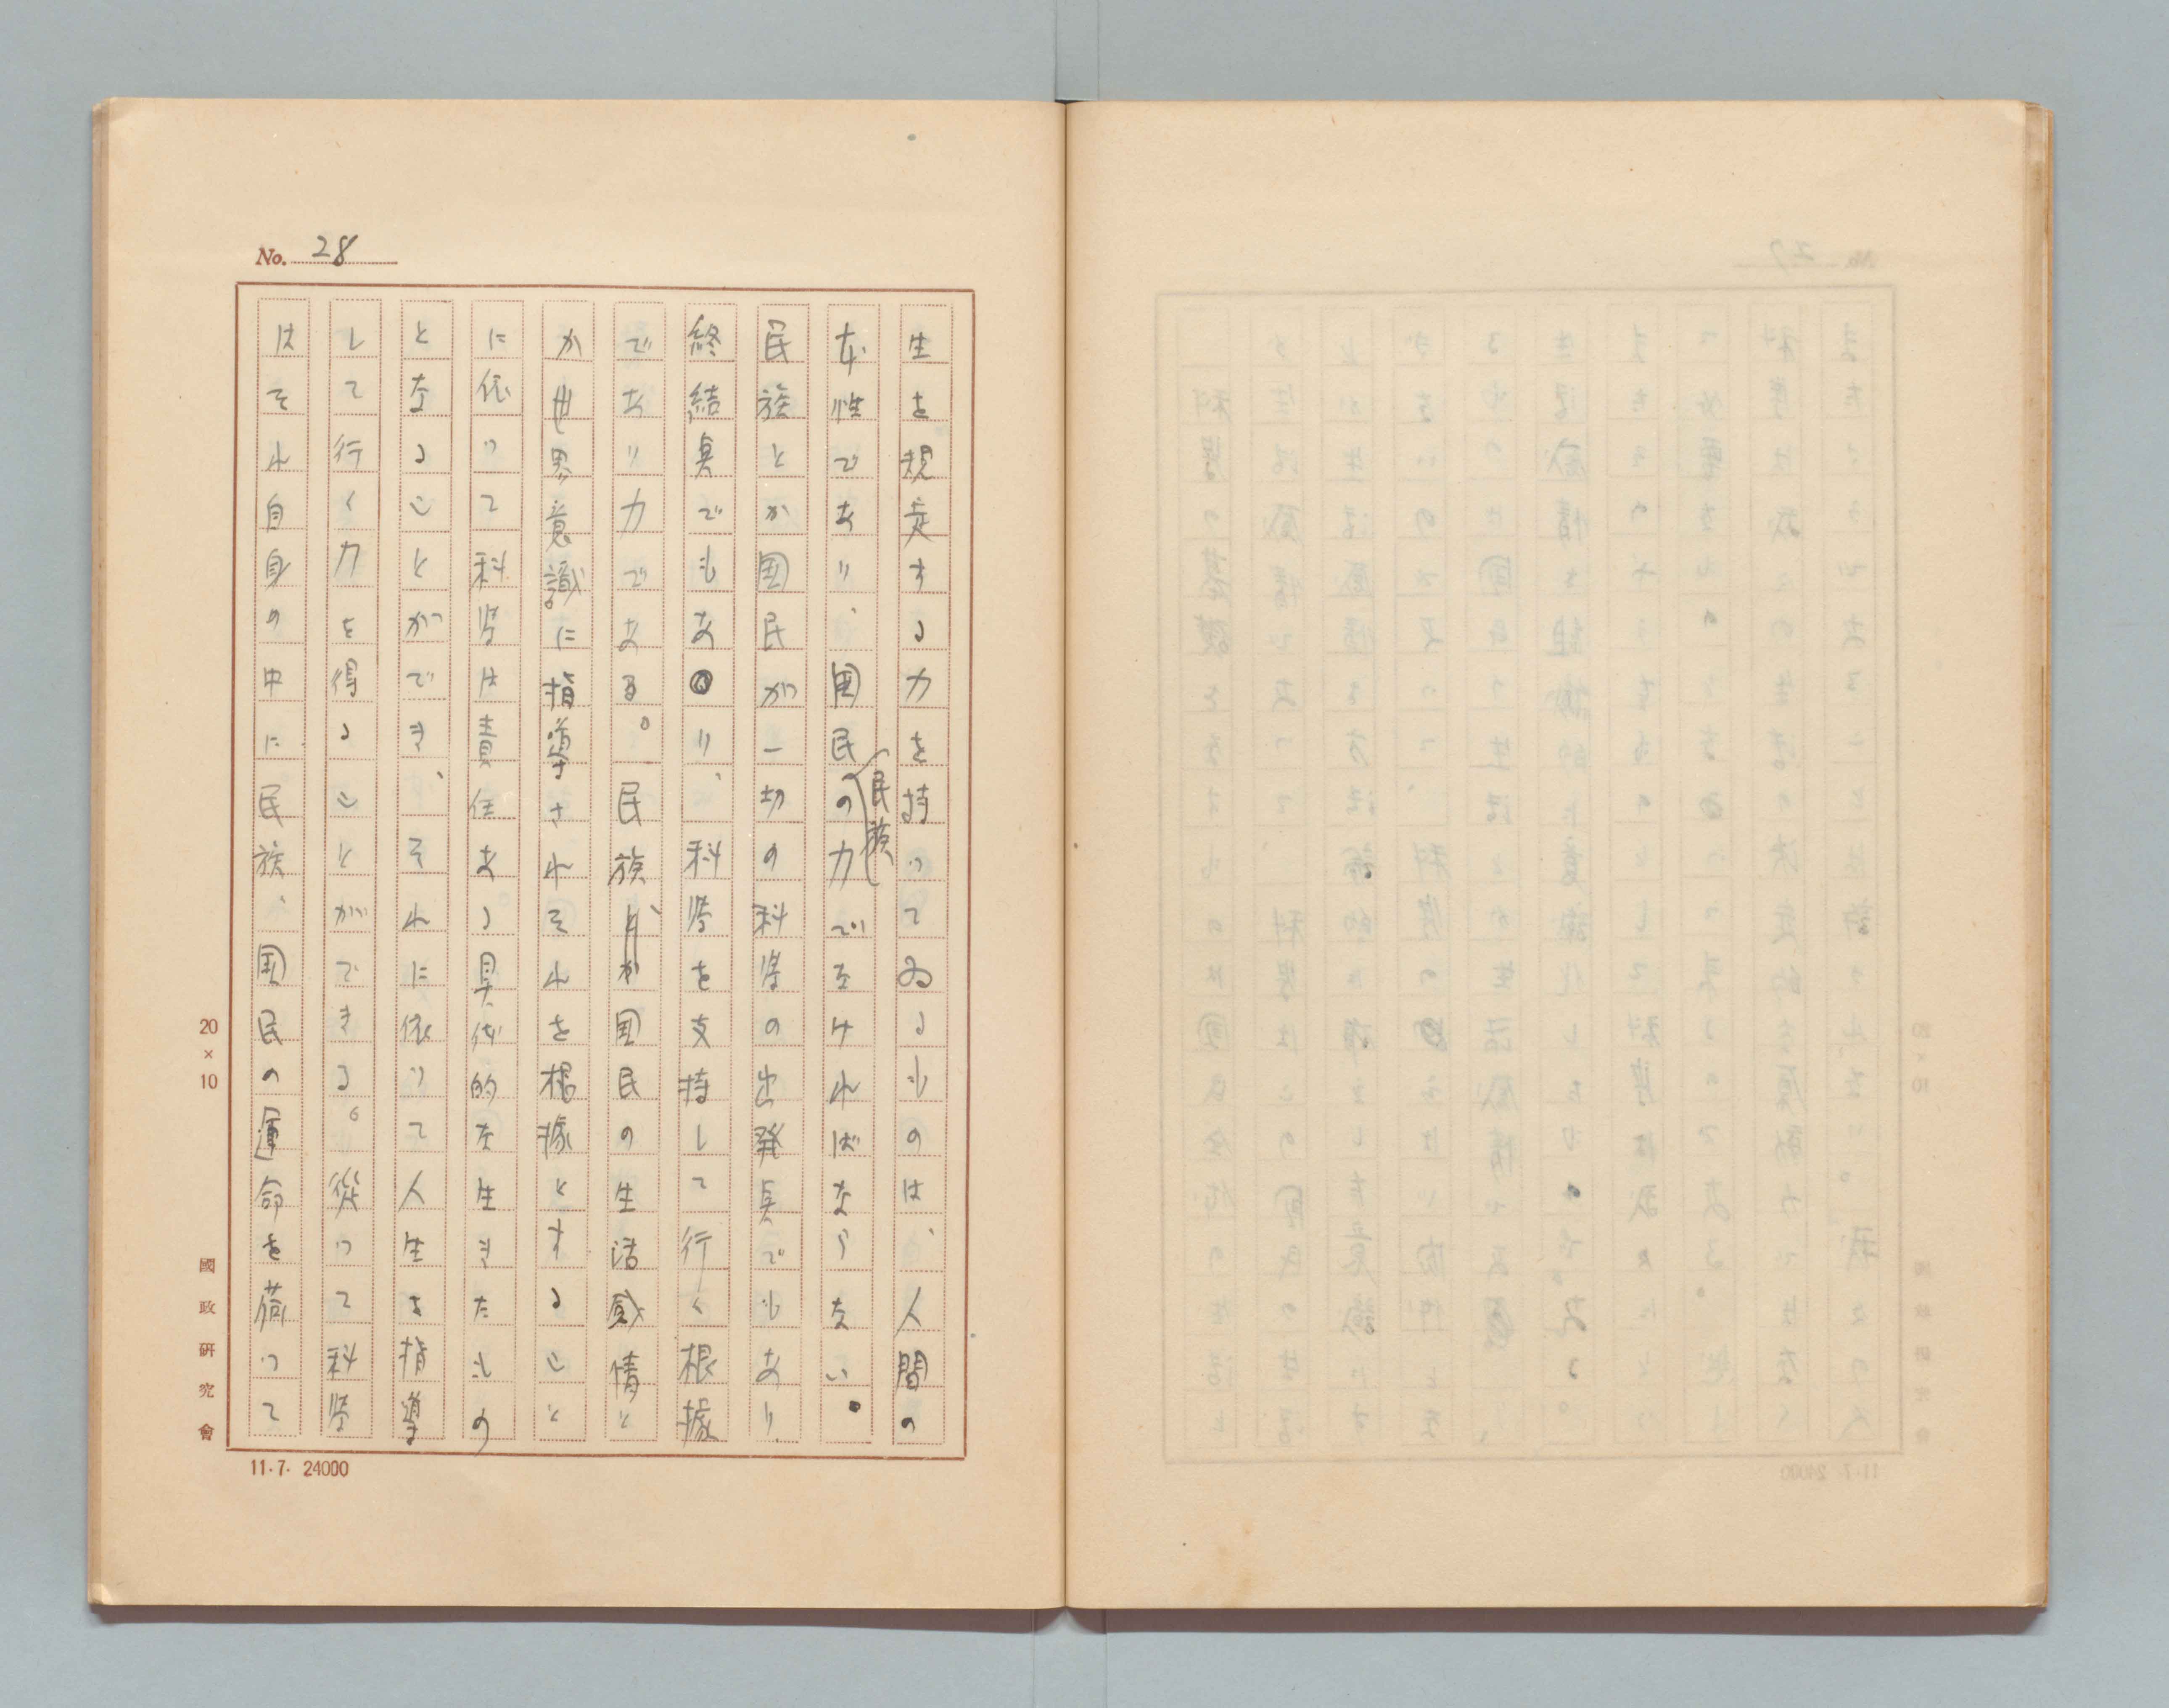 No. 28
生を規定する力を持つてゐるものは、人間の
本性であり、国民の力でなければならない。
民族
民族とか国民が一切の科学の出発点でもあり
終結点でもあり、科学を支持して行く根拠
であり力である。民族とか国民の生活感情と
か世界意識に指導されそれを根拠とすること
に依つて科学は責任ある具体的な生きたもの
となることができ、それに依りて人生を指導
して行く力を得ることができる。従つて科学
はそれ自身の中に民族、国民の運命を荷つて
20×10
國政研究會
11.7. 24000